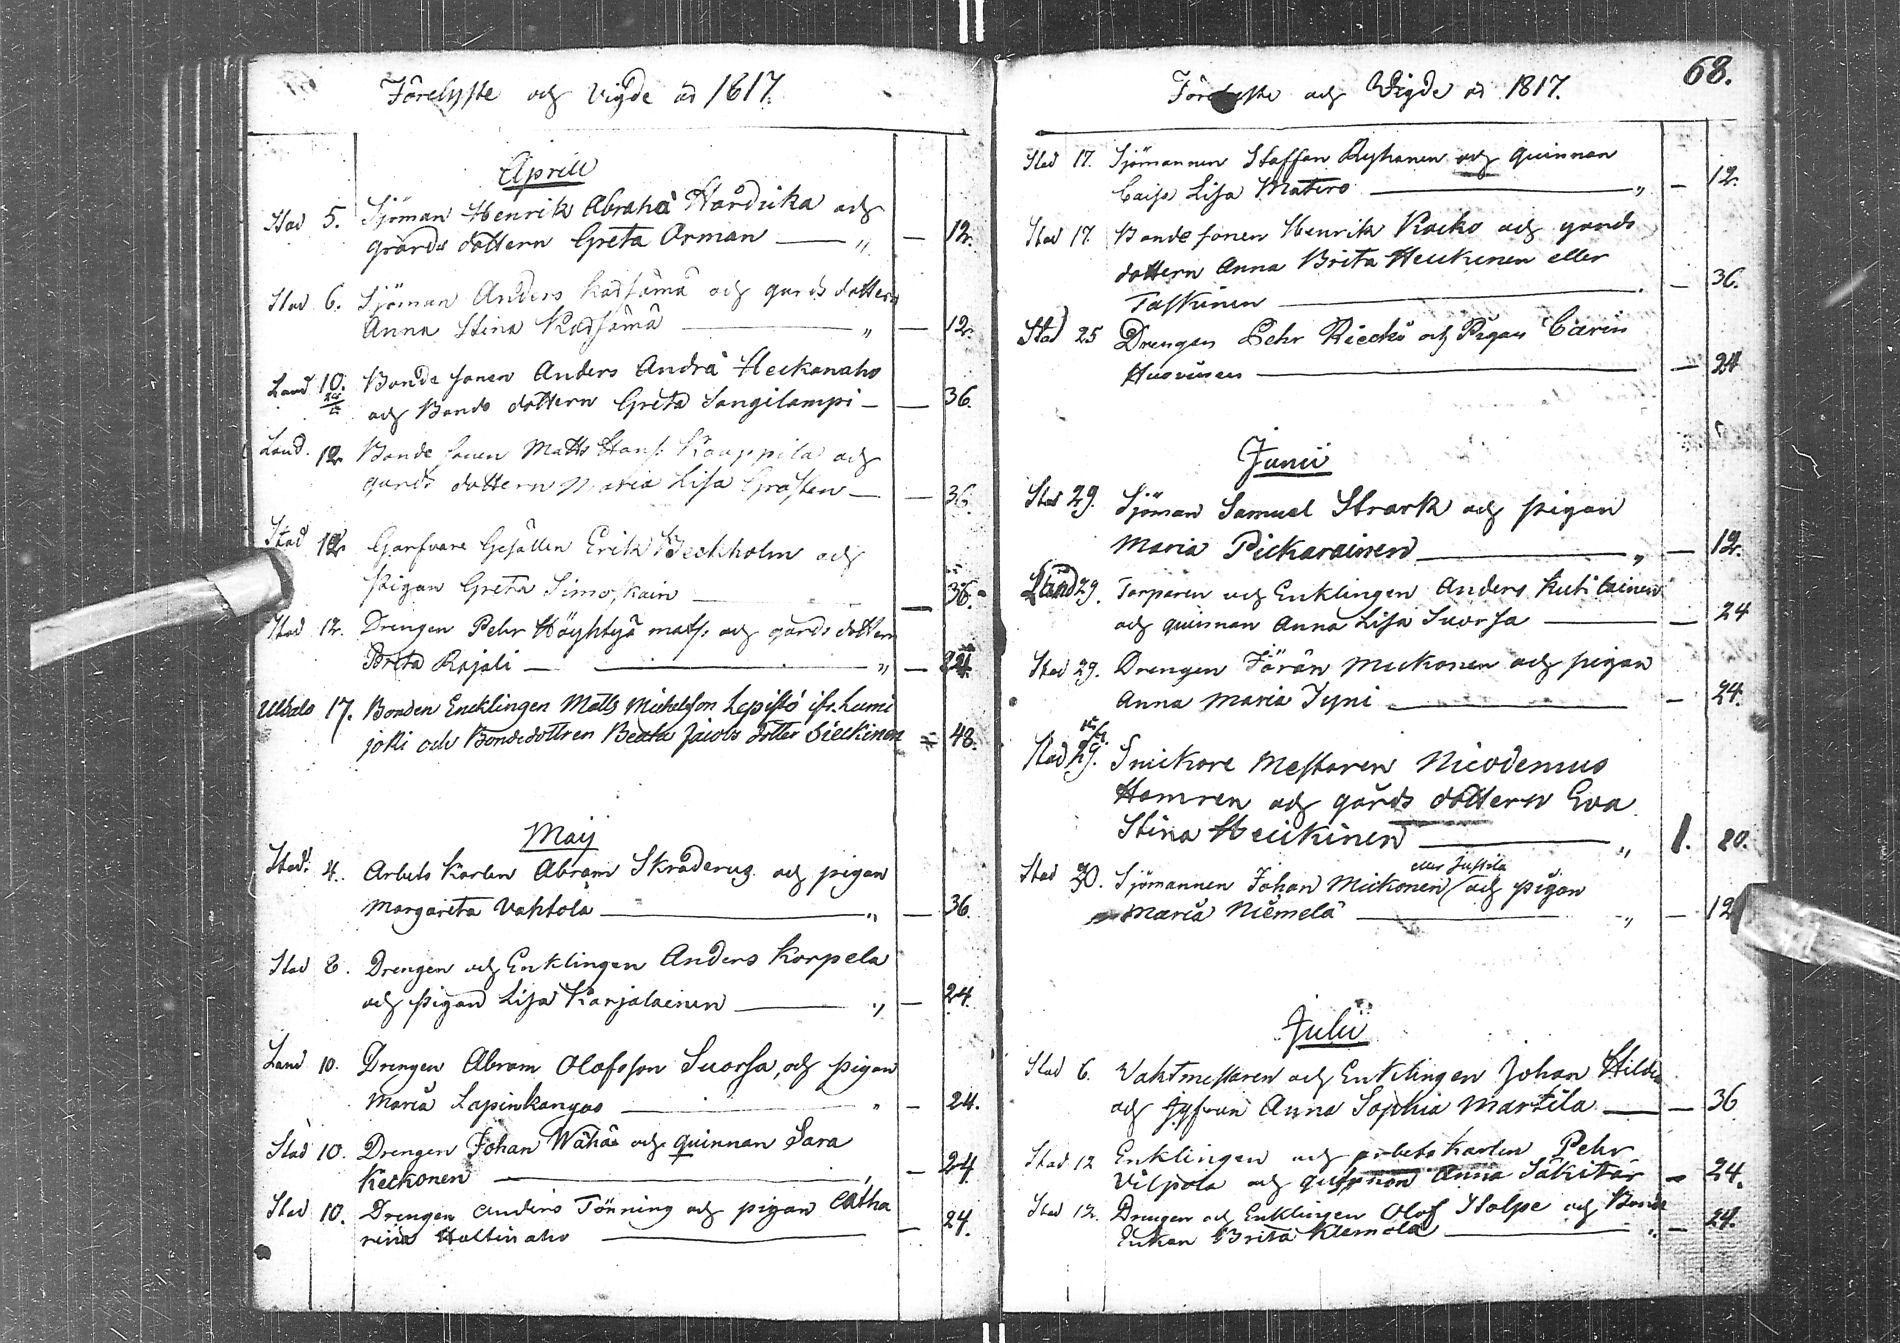 Förelyste och Vigde åd 1817.
Aprill
Stad 5. Sjöman Henrik Abrahã Hårdika och
gårds dottern Greta Orman — „ — 12.
Stad 6. Sjöman Anders Kadsåmå och gards dottern
Anna Stina Kadsåmå — „ — 12.
Land 10. Bonde sonen Anders Andrã Heckanaho
och Bonde dottern Greta Sangilampi — — 36.
Land. 12 Bonde sonen Matts Hans: Kauppila och
gards dottern Maria Lisa Grasten — — 36.
Stad 12 Garfvare Gesällen Erik Beckholm och
pigan Greta Simoskain — — 36.
Stad 12. Drengen Pehr Höyhtyä mats: och gårds dottern
Brita Rajali — „ — 24.
Uleålo 17. Bonden Encklingen Matts Michelson Lepistö ifr. Lumi
jocki och Bondedottren Beata Jacobs dotter Sieckinen = 48.
Maij
Stad. 4. Arbets Karlen Abram Skråderus och pigan
Margareta Vahtola — „ — 36.
Stad 8. Drengen och Enklingen Anders Korpela
och pigan Lisa Karjalainen — „ — 24.
Land 10. Drengen Abram Olofsson Suorsa, och pigan
Maria Lapinkangas — „ — 24.
Stad 10. Drengen Johan Wähä och quinnan Sara
Keckonen — „ — 24.
Stad 10. Drengen Anders Tönning och pigan Catha
rina Haltinaho — — 24.
68.
Förelyste och Vigde åd 1817.
Stad 17. Sjömannen Staffan Ryhänen och quinnan
Caisa Lisa Matero — „ — 12.
Stad 17. Bonde sonen Henrik Kacko och gards
dottern Anna Brita Heickinen eller
Taskinen — — 36.
Stad 25 Drengen Pehr Riecki och Pigan Carin
Husuinen — — 24
Junii
Stad 29. Sjöman Samuel Strark och pigan
Maria Pickarainen — „ — 12.
Land 29. Torparen och Enklingen Anders Kutilainen
och quinnan Anna Lisa Suorsa — — 24
Stad 29. Drengen Jöran Mickonen och pigan
Anna Maria Tyni — — 24.
Stad 29. Snickare Mestaren Nicodemus
Hamren och gårds dottern Eva
Stina Heickinen — „ 1. 20.
eller Jussila
Stad 30. Sjömannen Johan Mickonen / och pigan
Maria Niemelä — „ — 12
Julii
Stad 6. Vaktmestaren och Enklingen Johan Hilden
och Jgfrun Anna Sophia Martila — — 36
Stad 12 Enklingen och arbetskarlen Pehr
Vilpola och quinnan Anna Säkitär — 24.
Stad 12. Drengen och Enklingen Olof Stolpe och Bonde
Enkan Brita Klemola — „ — 24.